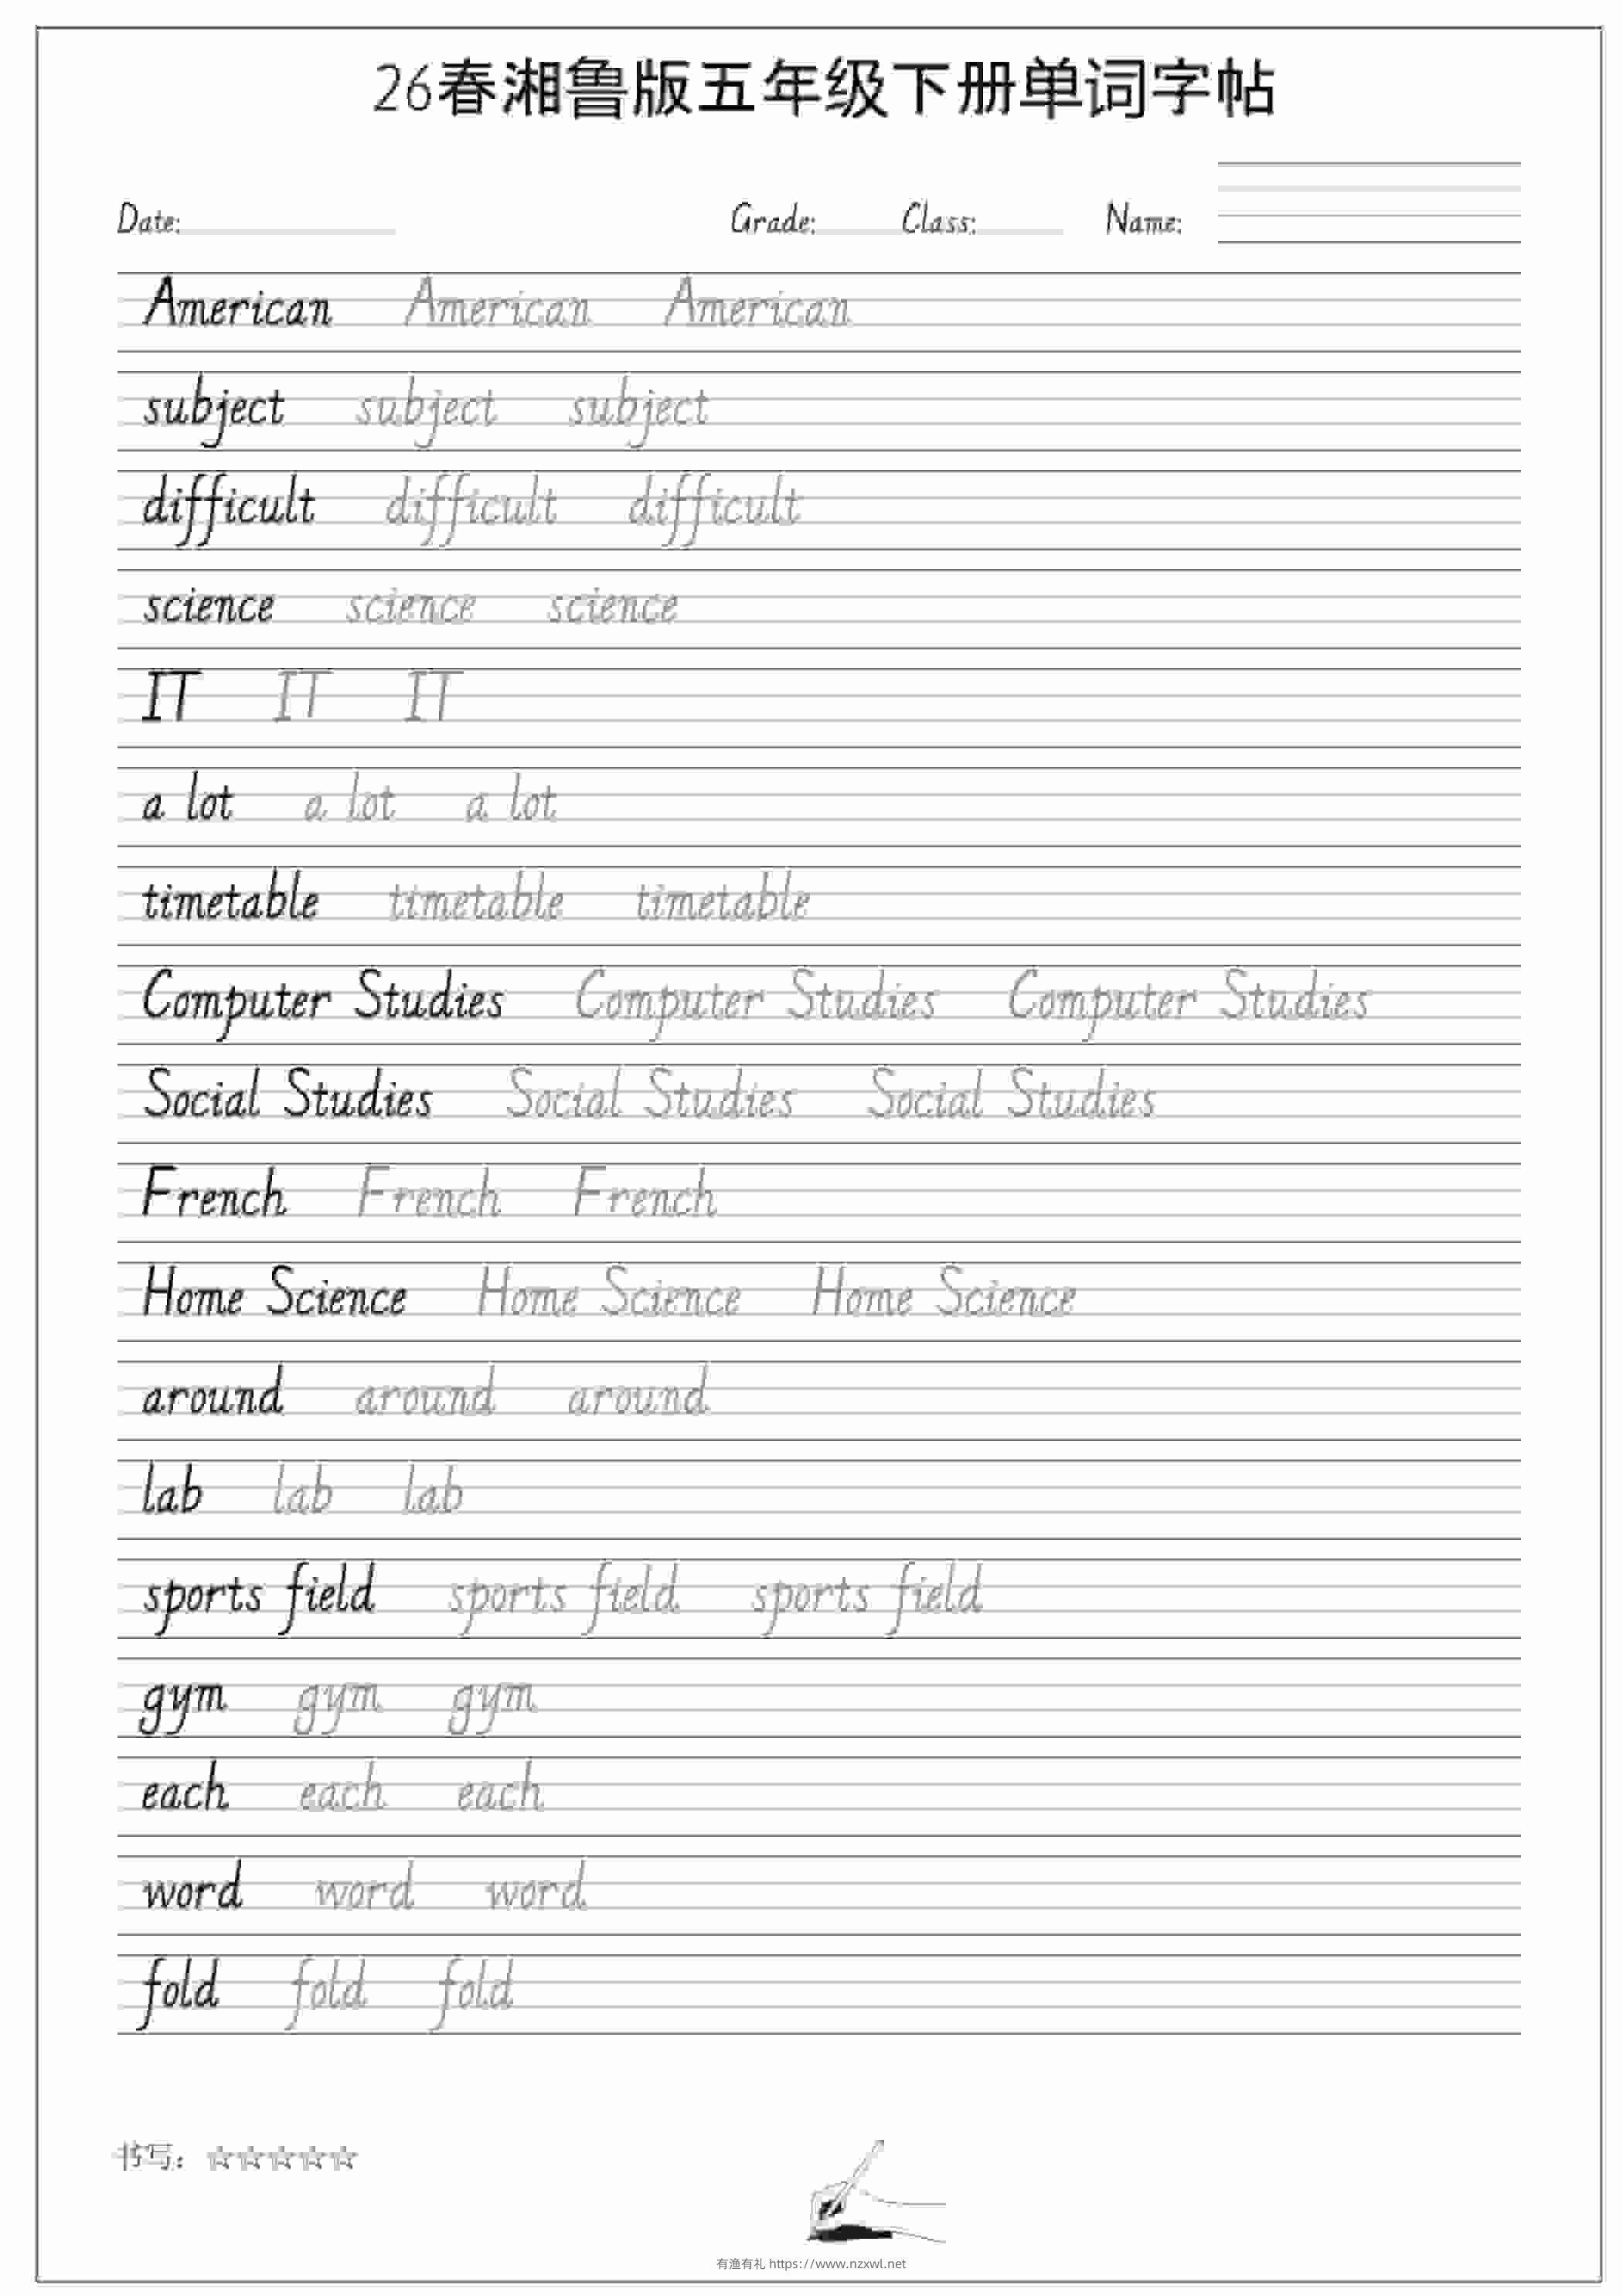 26春湘鲁版五年级下册单词字帖
Date: Grade: Class: Name:
American American American
subject subject subject
difficult difficult difficult
science science science
IT IT IT
a lot a lot a lot
timetable timetable timetable
Computer Studies Computer Studies Computer Studies
Social Studies Social Studies Social Studies
French French French
Home Science Home Science Home Science
around around around
lab lab lab
sports field sports field sports field
gym gym gym
each each each
word word word
fold fold fold
书写：☆☆☆☆☆
有渔有礼 https://www.nzxwl.net